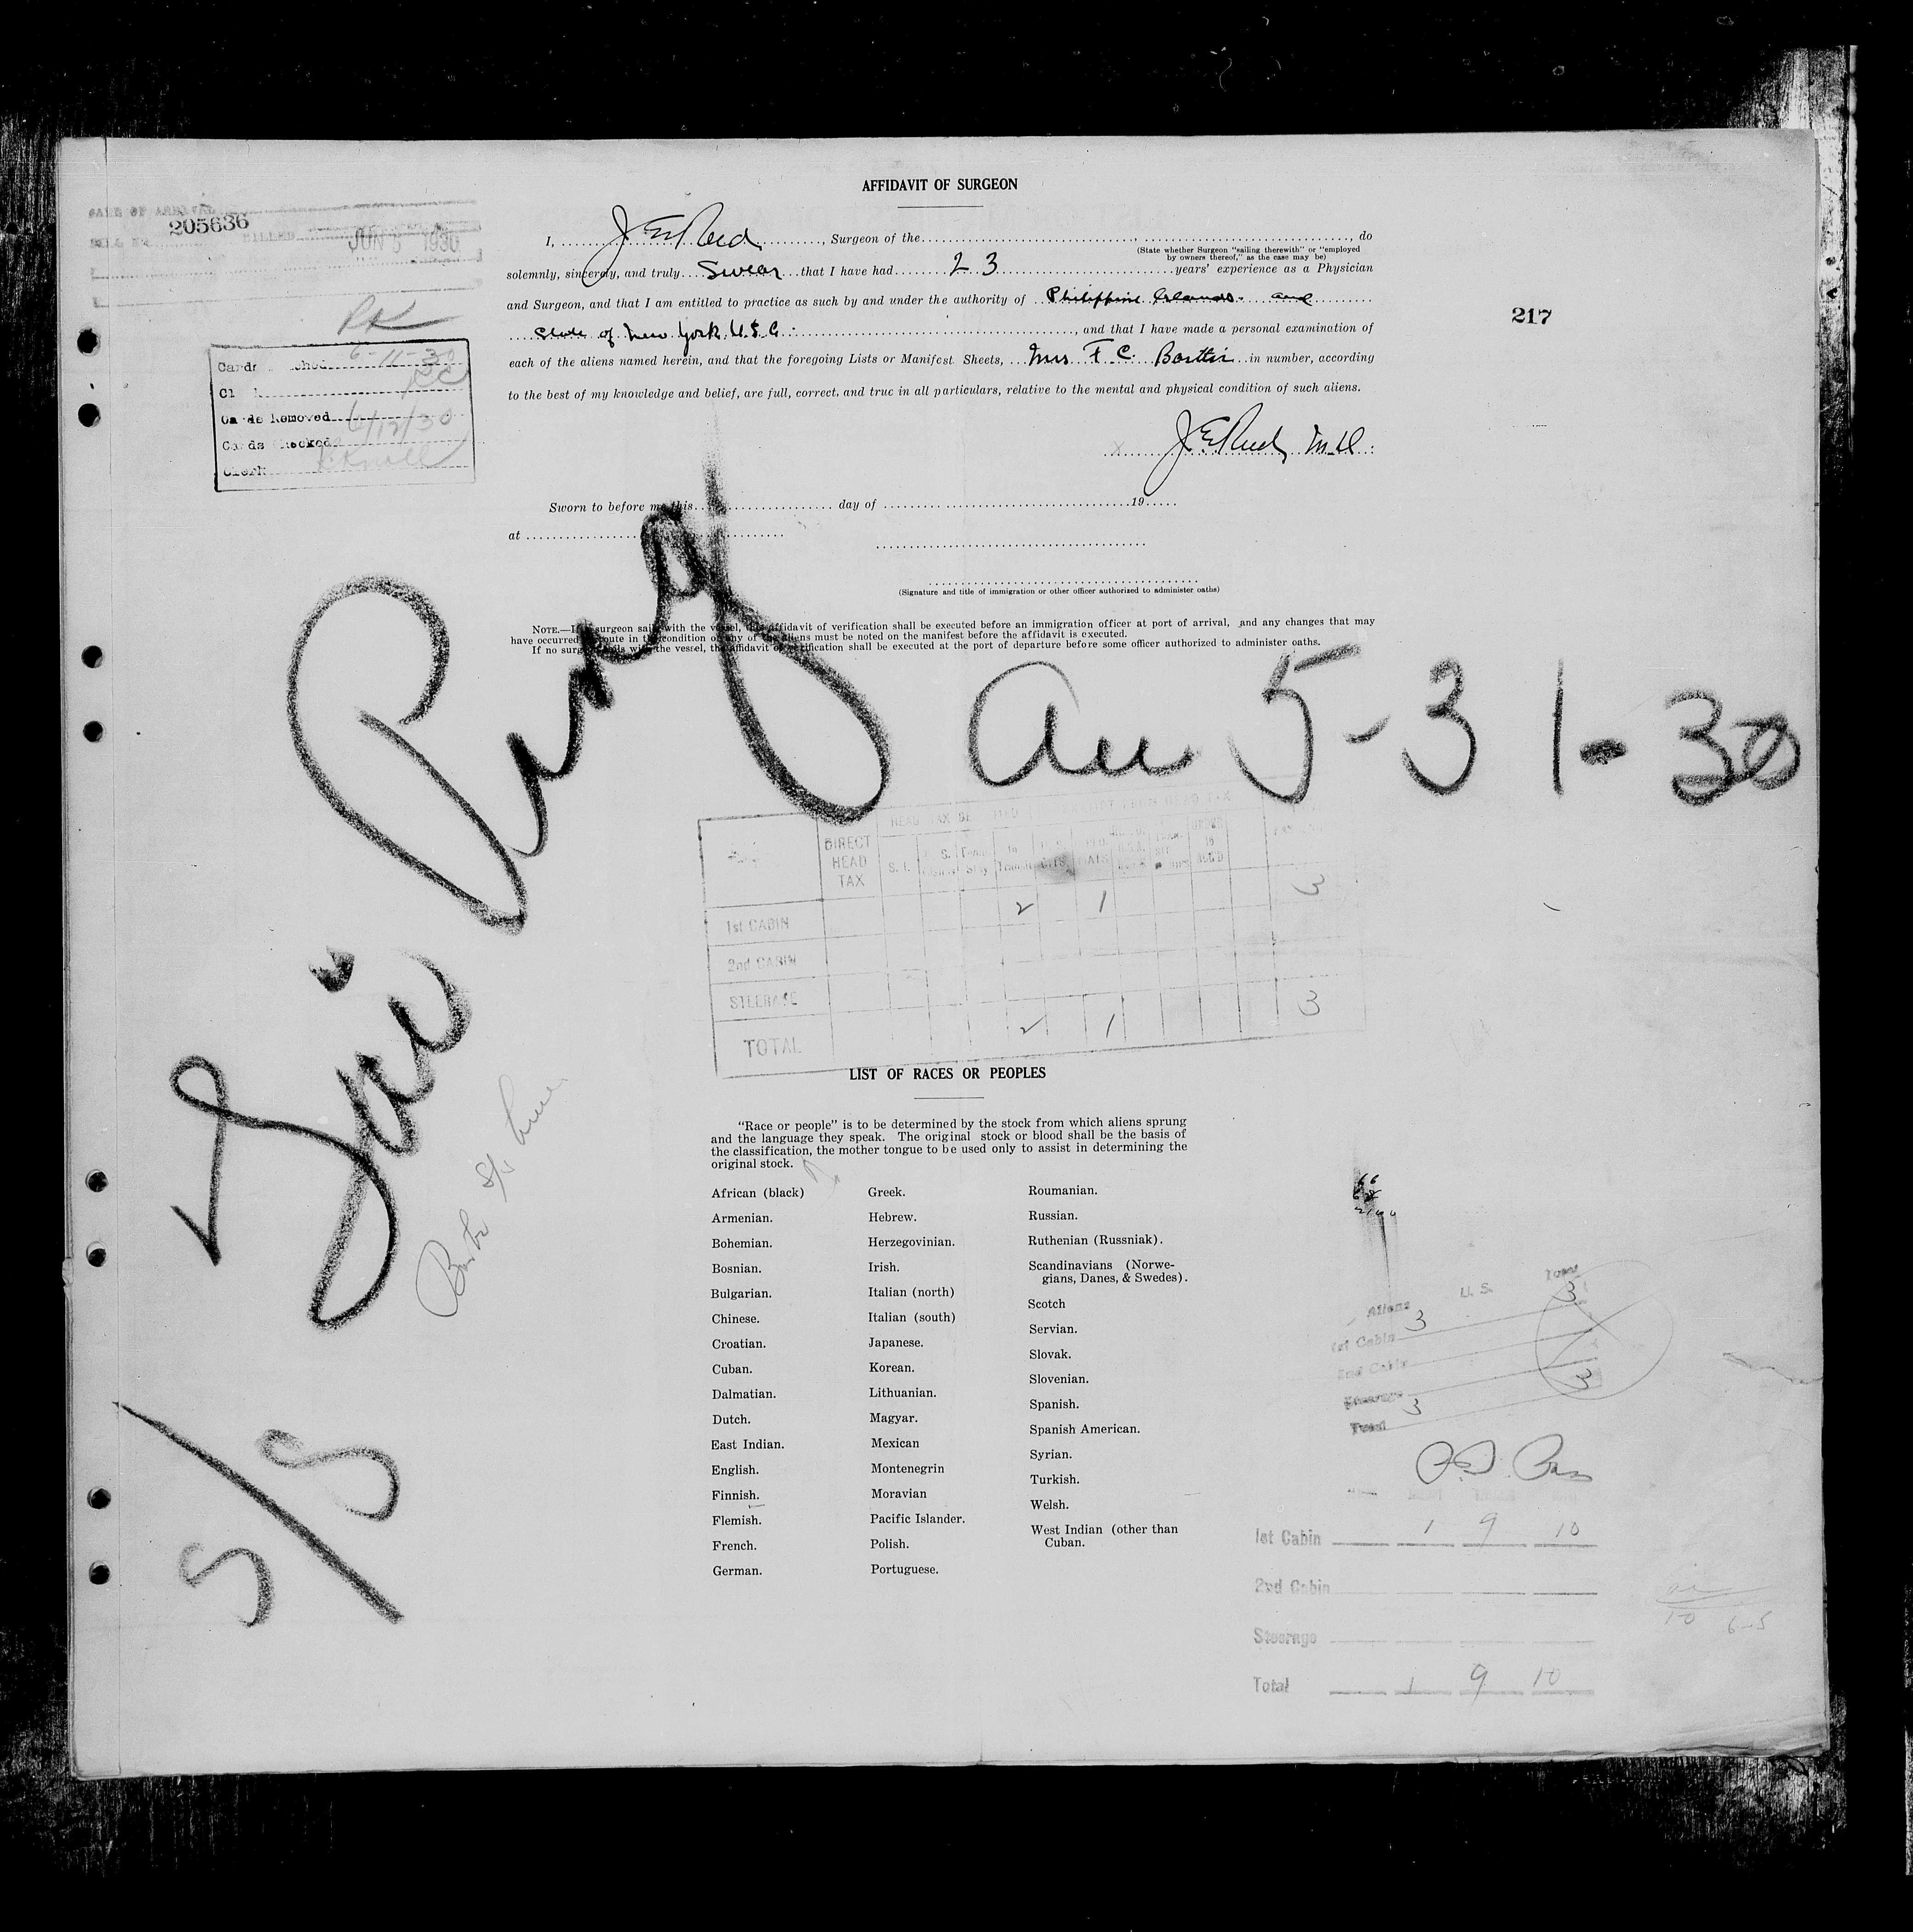 AFFIDAVIT OF SURGEON
DATE OF ARRIVAL
205636
BILLED
JUN 5 1930
I, J E Reed, Surgeon of the, do
(State whether Surgeon "sailing therewith" or "employed
by owners thereof," as the case may be)
solemnly, sincerely, and truly Swear that I have had 23 years' experience as a Physician
and Surgeon, and that I am entitled to practice as such by and under the authority of Philippine Islands and
State of New York U.S.A., and that I have made a personal examination of
217
each of the aliens named herein, and that the foregoing Lists or Manifest Sheets, Mrs F C in number, according
to the best of my knowledge and belief, are full, correct, and true in all particulars, relative to the mental and physical condition of such aliens.
J E Reed M D
6-11-30
Cards Removed 6/12/30
Cards Checked
Clerk
Sworn to before me this day of 19
at
(Signature and title of immigration or other officer authorized to administer oaths)
NOTE.—If surgeon sails with the vessel, this affidavit of verification shall be executed before an immigration officer at port of arrival, and any changes that may
have occurred en route in the condition of any of the aliens must be noted on the manifest before the affidavit is executed.
If no surgeon sails with the vessel, the affidavit of verification shall be executed at the port of departure before some officer authorized to administer oaths.
S/S
5-31-30
DIRECT
HEAD
TAX
S. I.
1st CABIN 2 1 3
2nd CABIN
STEERAGE
TOTAL 2 1 3
LIST OF RACES OR PEOPLES
"Race or people" is to be determined by the stock from which aliens sprung
and the language they speak. The original stock or blood shall be the basis of
the classification, the mother tongue to be used only to assist in determining the
original stock.
African (black)
Armenian.
Bohemian.
Bosnian.
Bulgarian.
Chinese.
Croatian.
Cuban.
Dalmatian.
Dutch.
East Indian.
English.
Finnish.
Flemish.
French.
German.
Greek.
Hebrew.
Herzegovinian.
Irish.
Italian (north)
Italian (south)
Japanese.
Korean.
Lithuanian.
Magyar.
Mexican
Montenegrin
Moravian
Pacific Islander.
Polish.
Portuguese.
Roumanian.
Russian.
Ruthenian (Russniak).
Scandinavians (Norwe-
gians, Danes, & Swedes).
Scotch
Servian.
Slovak.
Slovenian.
Spanish.
Spanish American.
Syrian.
Turkish.
Welsh.
West Indian (other than
Cuban.
Aliens U. S. Total
1st Cabin 3 3
2nd Cabin
Steerage
Total 3 3
1st Cabin 1 9 10
2nd Cabin
Steerage
Total 1 9 10
10 6-5